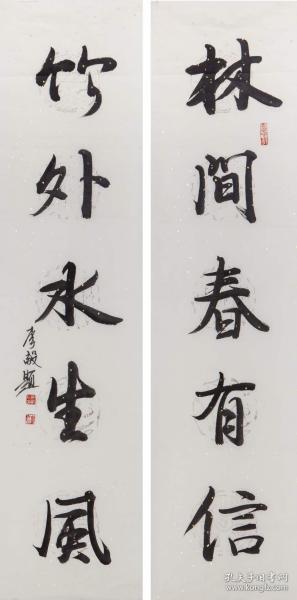 林間春有信
竹外水生風
李毅題
孔夫子旧书网